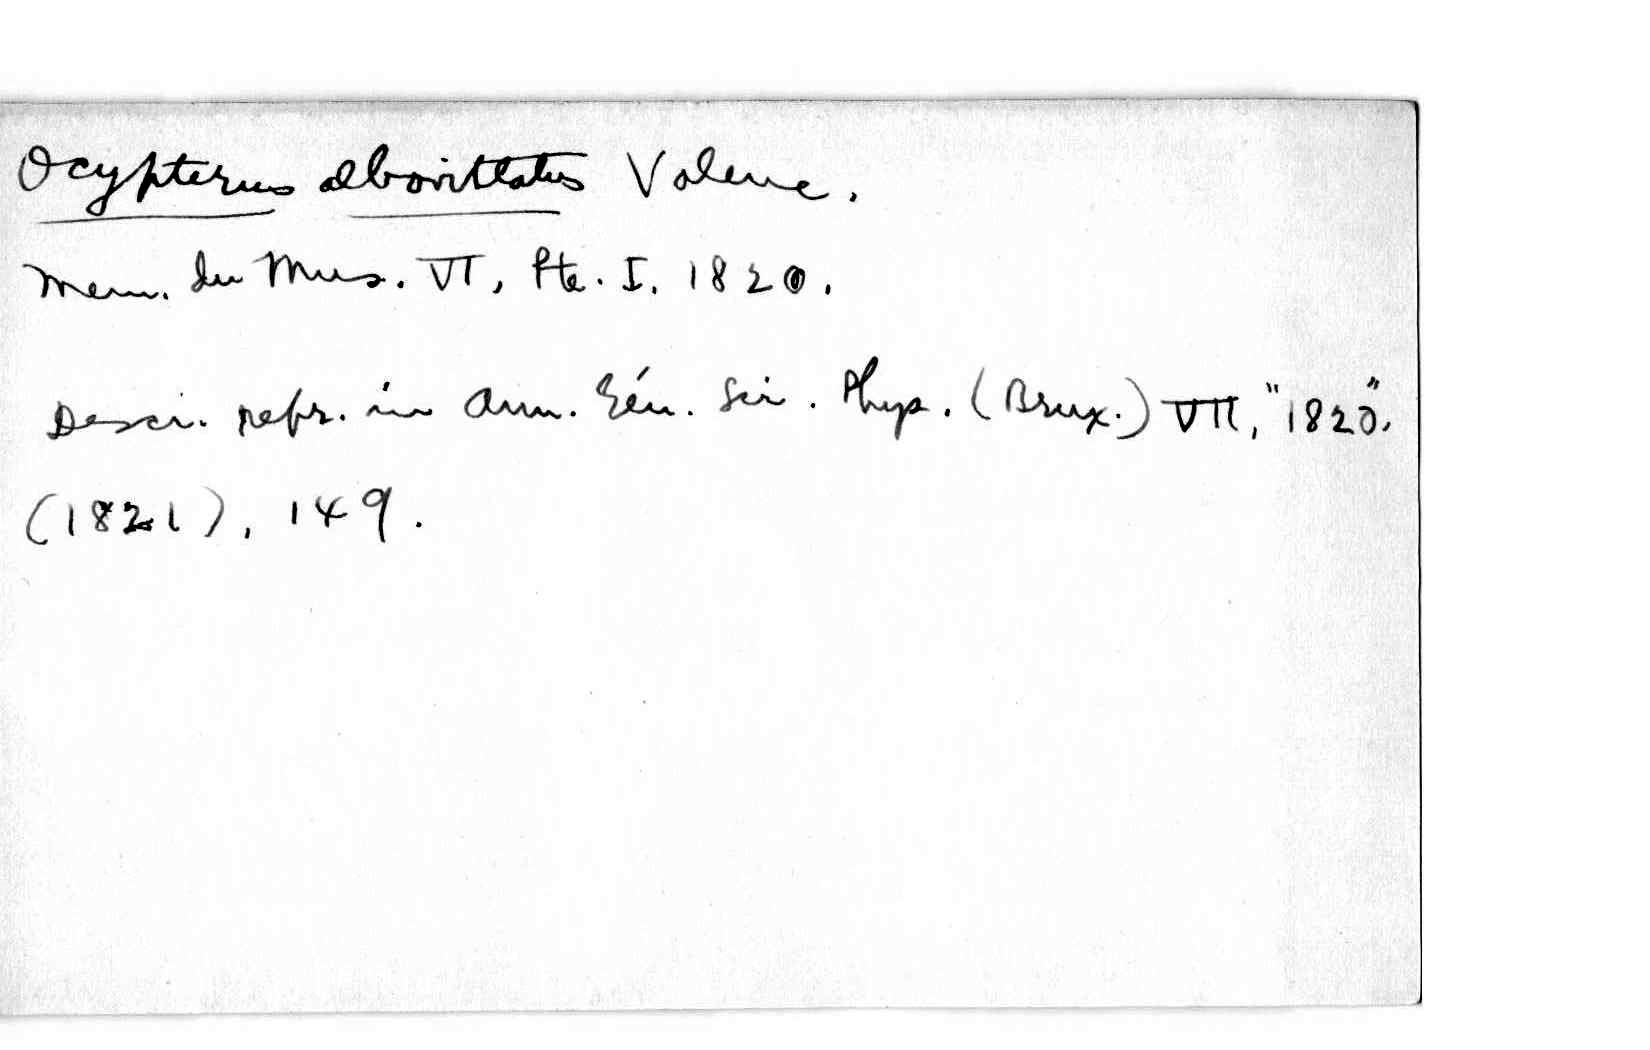 Ocypterus albovittatus Valenc.
Mem. du Mus. VI, Pte. I. 1820.
Descr. repr. in Ann. Gén. Sci. Phys. (Brux.) VII, "1820".
(1821), 149.